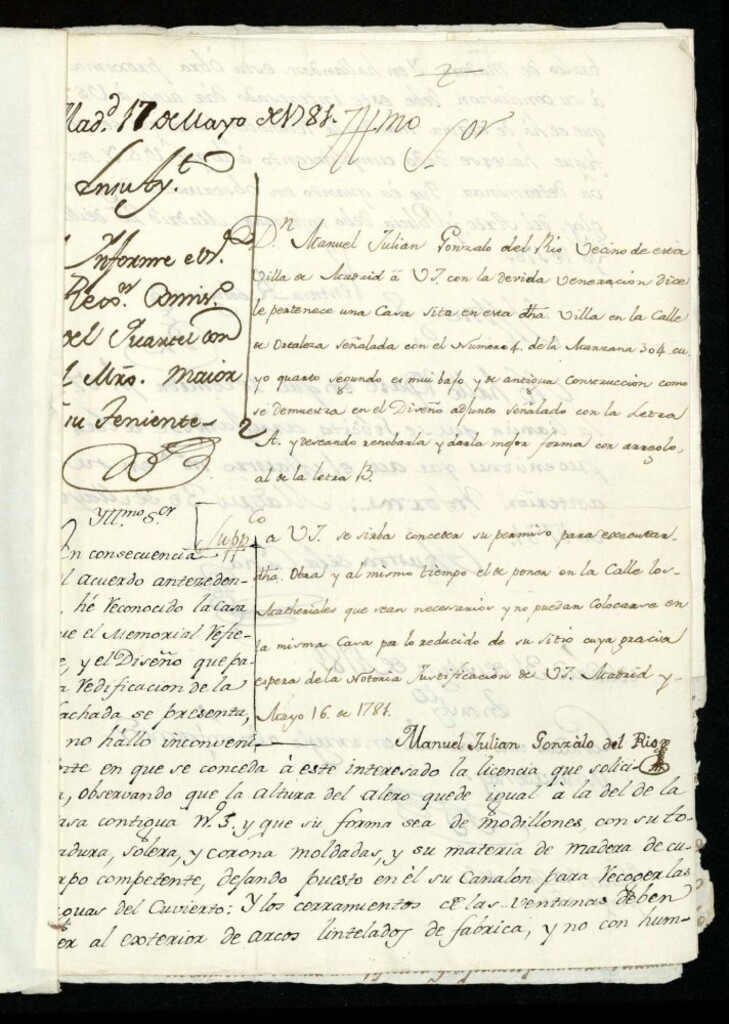 2
Mad.d 17 de Mayo de 1781.
Yllmo Sor
En su Ay.to
Informe el S.r
Reg.or Comis.o
del Quartel con
l Mro. maior
su Teniente
D.n Manuel Julian Gonzalo del Rio Vecino de esta
Villa de Madrid â VI. con la devida veneracion dice
le pertenece una Casa sita en esta dha. Villa en la Calle
de Ortaleza señalada con el Numero 4. de la Manzana 304. cu-
yo quarto segundo, es mui bajo y de antigua Construccion como
se demuestra en el Diseño adjunto señalado con la Letra
A. y deseando renobarla y darla mejor forma con arreglo,
al de la letra B.
Supp.co a VI. se sirba conceder su permiso para executar-
dha. Obra y al mismo tiempo el de poner en la Calle los-
Matheriales que sean necesarios y no puedan Colocarse en
la misma Casa por lo reducido de su sitio cuya gracia
espera de la Notoria Justificacion de VI. Madrid y-
Mayo 16. de 1781.
Manuel Julian Gonzalo del Rio
Yll.mo S.or
En consecuencia
l acuerdo anteceden-
, hé reconocido la casa
ue el Memorial refie-
e, y el Diseño que pa-
a redificacion de la
fachada se presenta,
no hállo inconveni-
nte en que se conceda à este interesado la licencia que solici-
a, observando que la altura del alero quede igual à la del de la
asa contigua N.o 3. y que su forma sea de modillones, con su to-
adura, solera, y corona moldadas, y su materia de madera de cu-
rpo competente, dejando puesto en él su Canalon para recoger las
guas del Cuvierto: Y los cerramientos de las ventanas deben
er al exterior de arcos lintelados de fabrica, y no con hum-